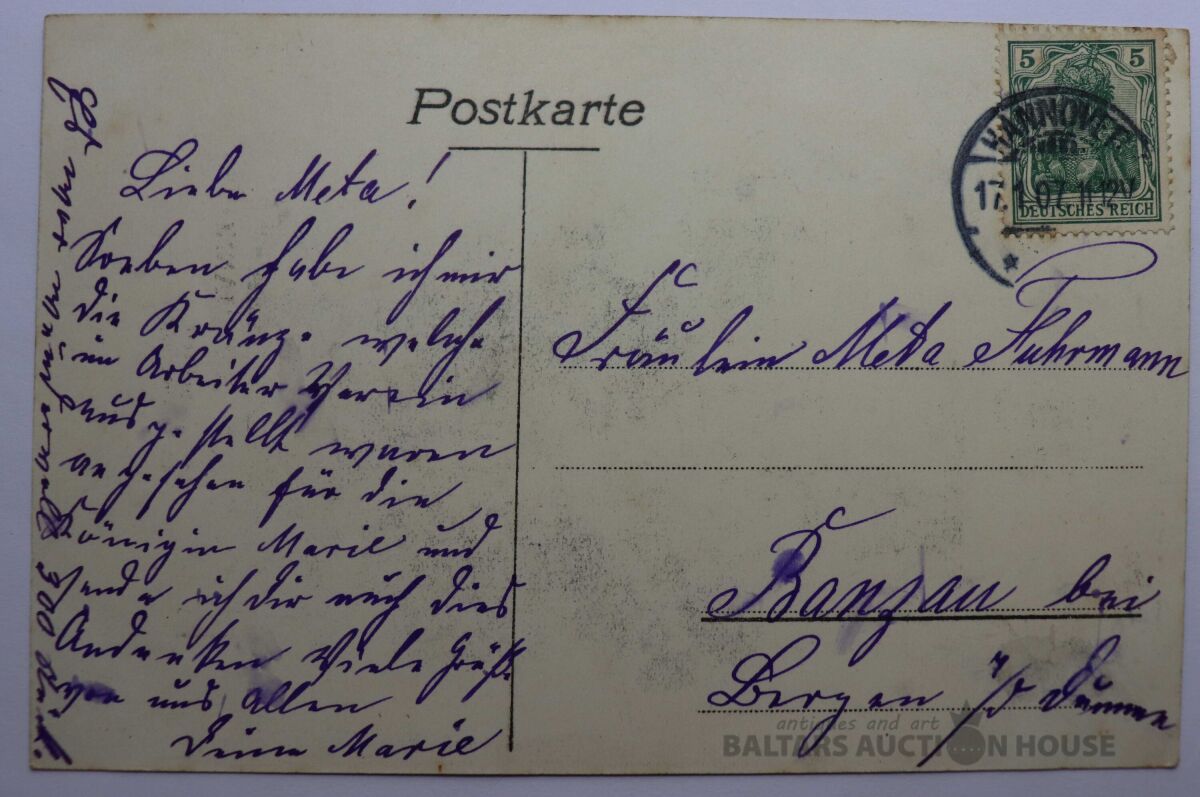 Postkarte
5 5
HANNOVER
17.1.07. 11-12V
DEUTSCHES REICH
Liebe Meta!
Soeben habe ich mir
die Kränze welche
im Arbeiter Verein
ausgestellt waren
angesehen für die
Königin Marie und
sende ich dir auch dies
Andenken Viele Grüße
von uns Allen
Deine Marie
Es waren ungefähr 300 Stück.
Fräulein Meta Fuhrmann
Banzau bei
Bergen a/d Dumme
antiques and art
BALTARS AUCTION HOUSE